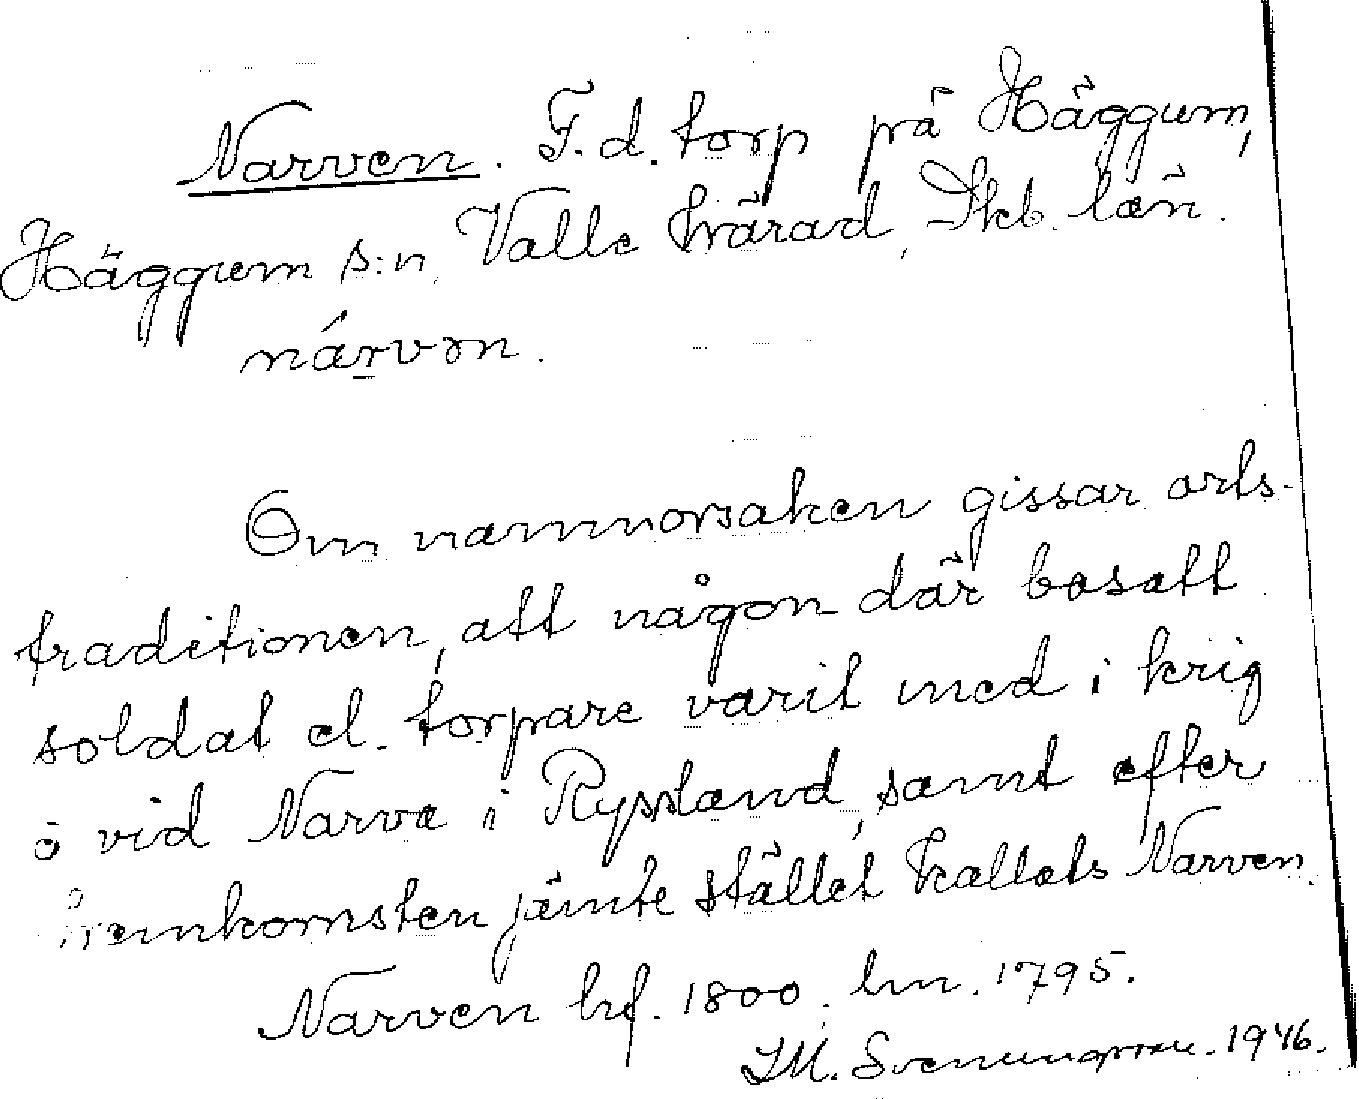 Narven. F.d. torp på Häggum,
Häggum s:n, Valle härad, Skb. län.
nárvən.
Om namnorsaken gissar orts-
traditionen, att någon där bosatt
soldat el. torpare varit med i krig
ö vid Narva i Ryssland, samt efter
hemkomsten jämte stället kallats Narven.
Narven hf. 1800. lm. 1795.
I.M. Svenungsson. 1946.